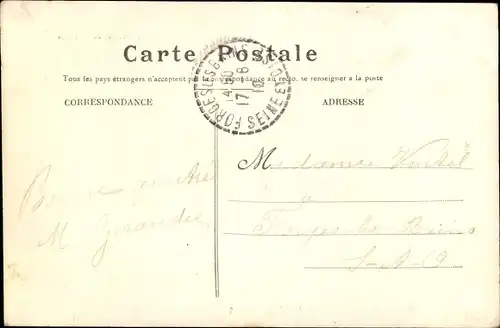 Carte Postale
Tous les pays étrangers n'acceptent pas la correspondance au recto, se renseigner a la poste
CORRESPONDANCE
ADRESSE
FORGES-LES-BAINS SEINE-ET-OISE
17 - 8
Madame
à
Forges les Bains
S-&-O
Bonne
M.